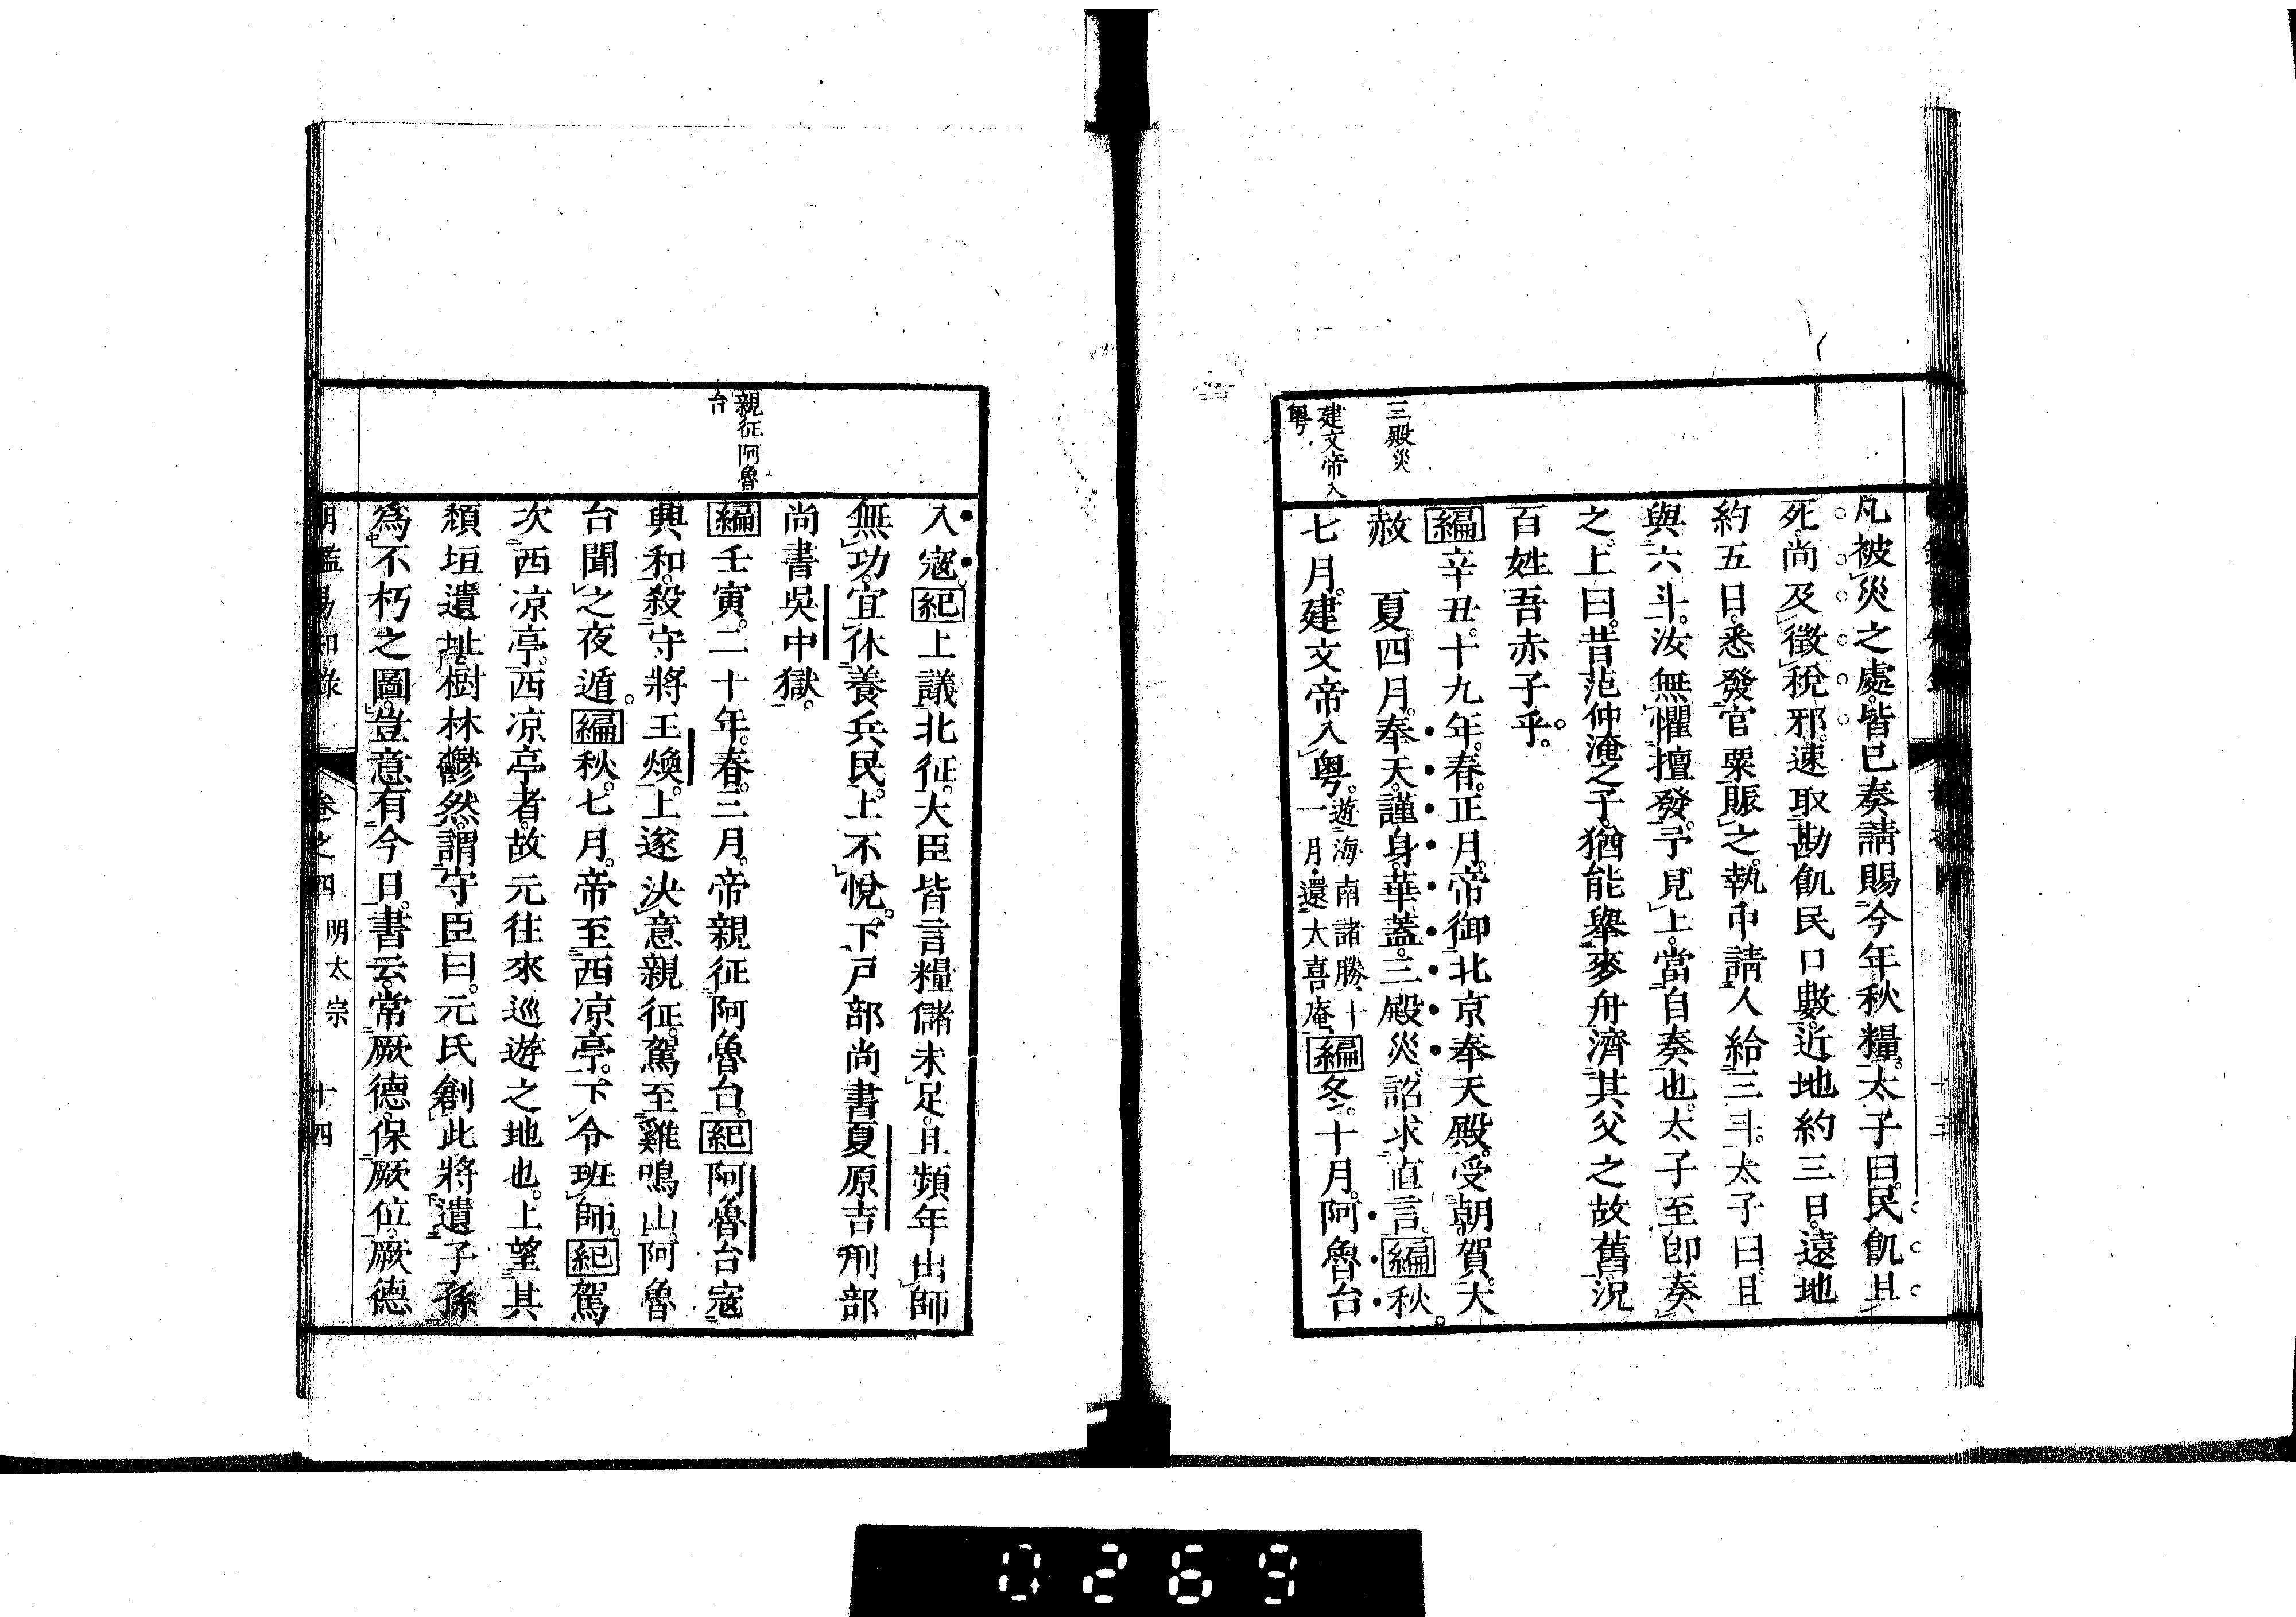 凡被災之處。皆已奏請賜今年秋糧。太子曰。民飢且
死。尚及徵稅邪。速取勘飢民口數。近地約三日。遠地
約五日。悉發官粟賑之。執中請人給三斗。太子曰。且
與六斗。汝無懼擅發。予見上。當自奏也。太子至卽奏
之。上曰。昔范仲淹之子。猶能舉麥舟濟其父之故舊。況
百姓吾赤子乎。
編辛丑。十九年。春。正月。帝御北京奉天殿。受朝賀。大
赦　夏。四月。奉天。謹身。華蓋。三殿災。詔求直言。編秋。
七月。建文帝入粵。遊海南諸勝。十
一月。還大喜庵
編冬。十月。阿魯台
三殿災
建文帝入
粵
入寇。紀上議北征。大臣皆言糧儲未足。且頻年出師
無功。宜休養兵民。上不悅。下戸部尚書夏原吉刑部
尚書吳中獄。
編壬寅。二十年。春。三月。帝親征阿魯台。紀阿魯台寇
興和。殺守將王煥。上遂決意親征。駕至雞鳴山。阿魯
台聞之夜遁。編秋。七月。帝至西凉亭。下令班師。紀駕
次西凉亭。西凉亭者。故元往來巡遊之地也。上望其
頹垣遺址。樹林鬱然。謂守臣曰。元氏創此將遺子孫
爲不朽之圖。豈意有今日。書云。常厥德。保厥位。厥德
親征阿魯
台
卷之四
明太宗
十四
0269